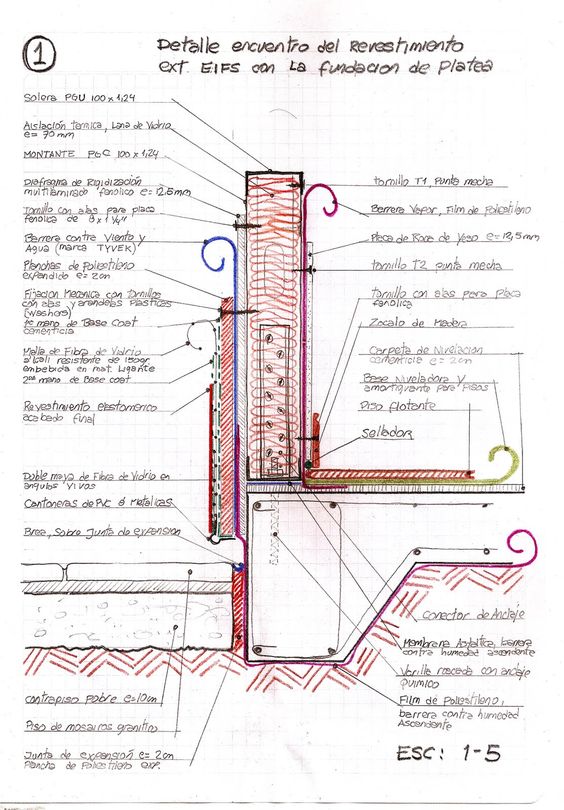 1
Detalle encuentro del Revestimiento
ext. EIFS con La fundacion de Platea
Solera PGU 100 x 1,24
Aislación termica, Lana de Vidrio
e= 70 mm
MONTANTE PGC 100 x 1,24
Diafragma de Rigidización
multilaminado fenolico e= 12,5mm
Tornillo con alas para placa
fenolica de 8 x 1 1/4"
Barrera contra Viento y
Agua (marca TYVEK)
Planchas de Poliestileno
expandido e= 2cm
Fijacion Mecanica con tornillos
con alas y arandelas Plasticas
(washers)
1ª mano de Base Coat
cementicia
Malla de Fibra de Vidrio
alcali resistente de 150gr.
embebida en mat. Ligante
2da mano de Base coat
Revestimiento elastomerico
acabado final
Doble maya de Fibra de Vidrio en
angulos vivos
Cantoneras de PVC ó Metalicas
Brea, Sobre Junta de expansion
Contrapiso pobre e= 10cm
Piso de mosaicos granitico
Junta de expansión e= 2cm
Plancha de Poliestileno exp.
tornillo T1, Punta mecha
Barrera Vapor, Film de Poliestileno
Placa de Roca de Yeso e= 12,5mm
tornillo T2 punta mecha
tornillo con alas para placa
fenolica
Zocalo de Madera
Carpeta de Nivelacion
cementicia e= 2cm
Base Niveladora y
amortiguante para Pisos
Piso flotante
Sellador
Conector de Anclaje
Membrana Asfaltica, barrera
contra humedad ascendente
Varilla roscada con anclaje
Quimico
Film de Poliestileno,
barrera contra humedad
Ascendante
ESC: 1-5